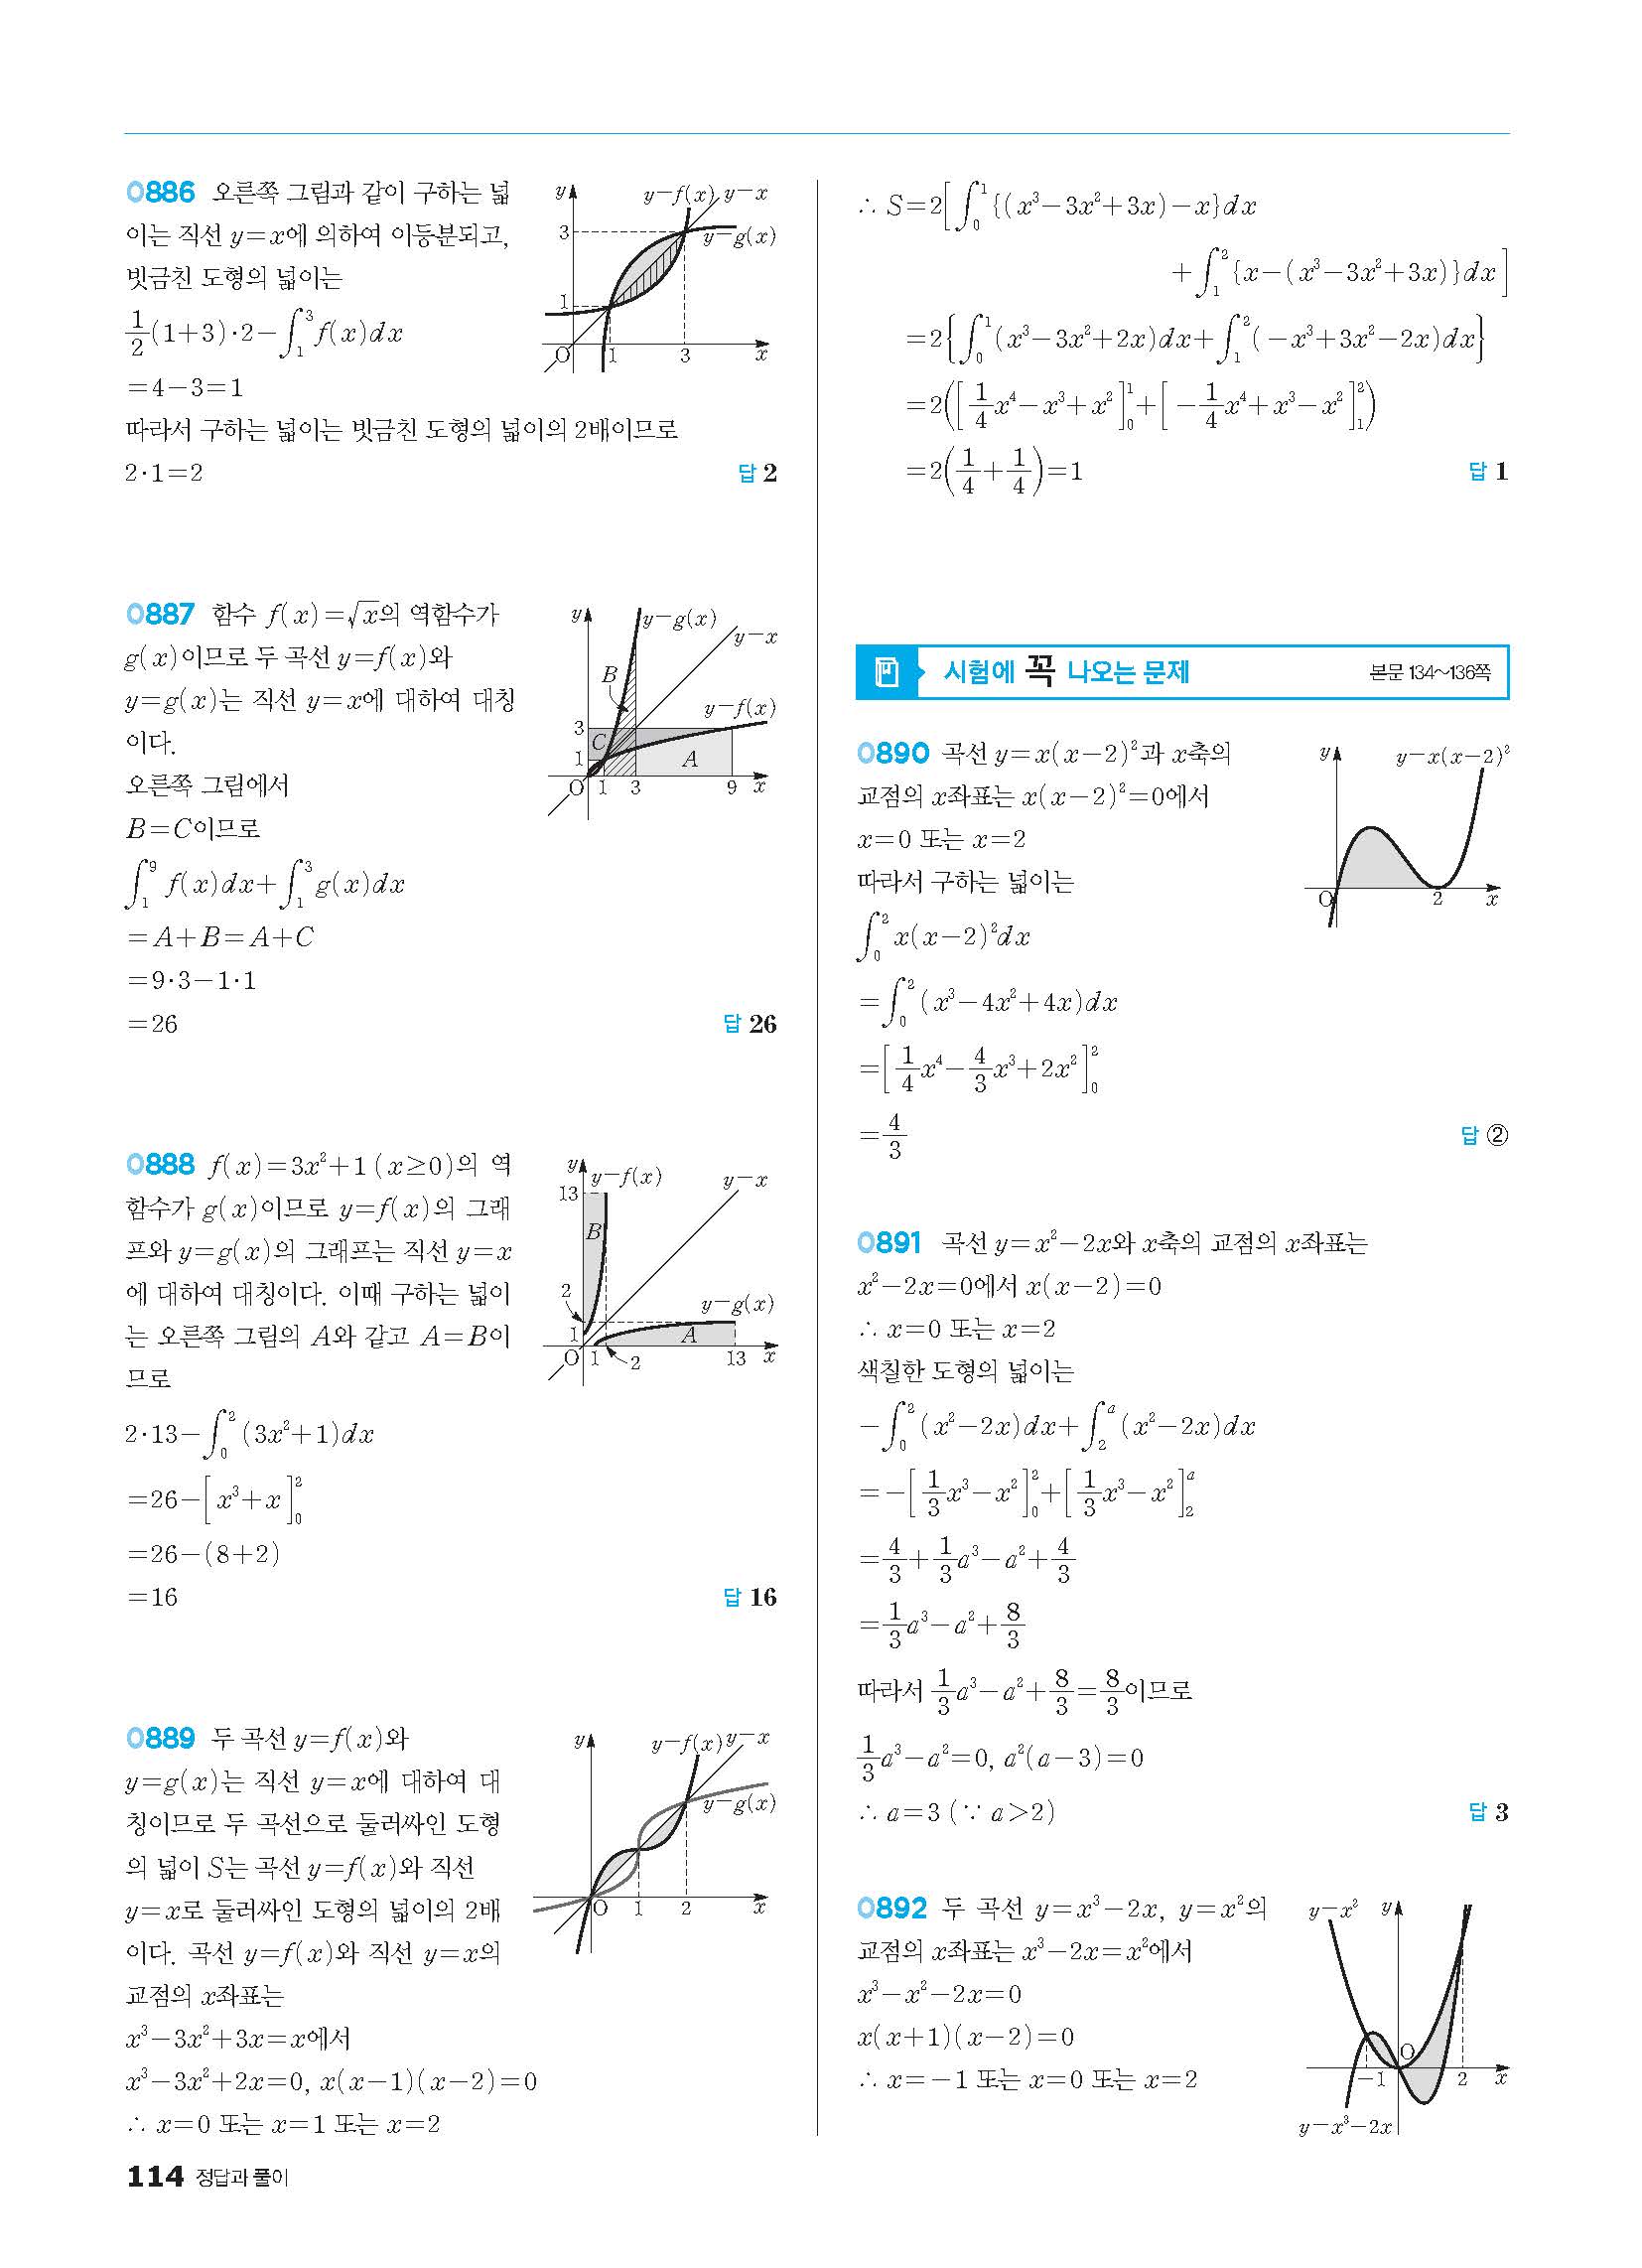 0886 오른쪽 그림과 같이 구하는 넓
이는 직선 y=x에 의하여 이등분되고,
빗금친 도형의 넓이는
1/2(1+3)·2-∫₁³ f(x)dx
=4-3=1
따라서 구하는 넓이는 빗금친 도형의 넓이의 2배이므로
2·1=2 답 2
y y=f(x) y=x
3 y=g(x)
1
O 1 3 x
0887 함수 f(x)=√x의 역함수가
g(x)이므로 두 곡선 y=f(x)와
y=g(x)는 직선 y=x에 대하여 대칭
이다.
오른쪽 그림에서
B=C이므로
∫₁⁹ f(x)dx+∫₁³ g(x)dx
=A+B=A+C
=9·3-1·1
=26 답 26
y y=g(x)
y=x
B
y=f(x)
3 C
1 A
O 1 3 9 x
0888 f(x)=3x²+1 (x≥0)의 역
함수가 g(x)이므로 y=f(x)의 그래
프와 y=g(x)의 그래프는 직선 y=x
에 대하여 대칭이다. 이때 구하는 넓이
는 오른쪽 그림의 A와 같고 A=B이
므로
2·13-∫₀² (3x²+1)dx
=26-[x³+x]₀²
=26-(8+2)
=16 답 16
y y=f(x) y=x
13
B
2 y=g(x)
1 A
O 1 2 13 x
0889 두 곡선 y=f(x)와
y=g(x)는 직선 y=x에 대하여 대
칭이므로 두 곡선으로 둘러싸인 도형
의 넓이 S는 곡선 y=f(x)와 직선
y=x로 둘러싸인 도형의 넓이의 2배
이다. 곡선 y=f(x)와 직선 y=x의
교점의 x좌표는
x³-3x²+3x=x에서
x³-3x²+2x=0, x(x-1)(x-2)=0
∴ x=0 또는 x=1 또는 x=2
y y=f(x) y=x
y=g(x)
O 1 2 x
∴ S=2[∫₀¹ {(x³-3x²+3x)-x}dx
+∫₁² {x-(x³-3x²+3x)}dx]
=2{∫₀¹ (x³-3x²+2x)dx+∫₁² (-x³+3x²-2x)dx}
=2([1/4x⁴-x³+x²]₀¹+[-1/4x⁴+x³-x²]₁²)
=2(1/4+1/4)=1 답 1
시험에 꼭 나오는 문제 본문 134~136쪽
0890 곡선 y=x(x-2)²과 x축의
교점의 x좌표는 x(x-2)²=0에서
x=0 또는 x=2
따라서 구하는 넓이는
∫₀² x(x-2)²dx
=∫₀² (x³-4x²+4x)dx
=[1/4x⁴-4/3x³+2x²]₀²
=4/3 답 ②
y y=x(x-2)²
O 2 x
0891 곡선 y=x²-2x와 x축의 교점의 x좌표는
x²-2x=0에서 x(x-2)=0
∴ x=0 또는 x=2
색칠한 도형의 넓이는
-∫₀² (x²-2x)dx+∫₂ᵃ (x²-2x)dx
=-[1/3x³-x²]₀²+[1/3x³-x²]₂ᵃ
=4/3+1/3a³-a²+4/3
=1/3a³-a²+8/3
따라서 1/3a³-a²+8/3=8/3이므로
1/3a³-a²=0, a²(a-3)=0
∴ a=3 (∵ a>2) 답 3
0892 두 곡선 y=x³-2x, y=x²의
교점의 x좌표는 x³-2x=x²에서
x³-x²-2x=0
x(x+1)(x-2)=0
∴ x=-1 또는 x=0 또는 x=2
y=x² y
O
-1 2 x
y=x³-2x
114 정답과 풀이